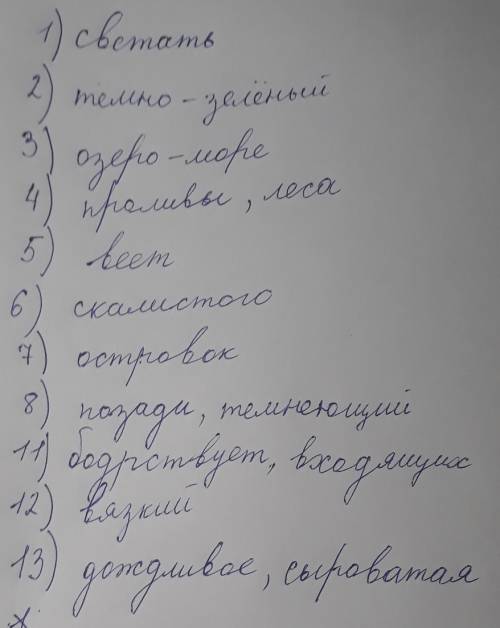 1) светать
2) темно-зелёный
3) озеро-море
4) проливы, леса
5) веет
6) скалистого
7) островок
8) позади, темнеющий
11) бодрствует, входящих
12) вязкий
13) дождливое, сыроватая